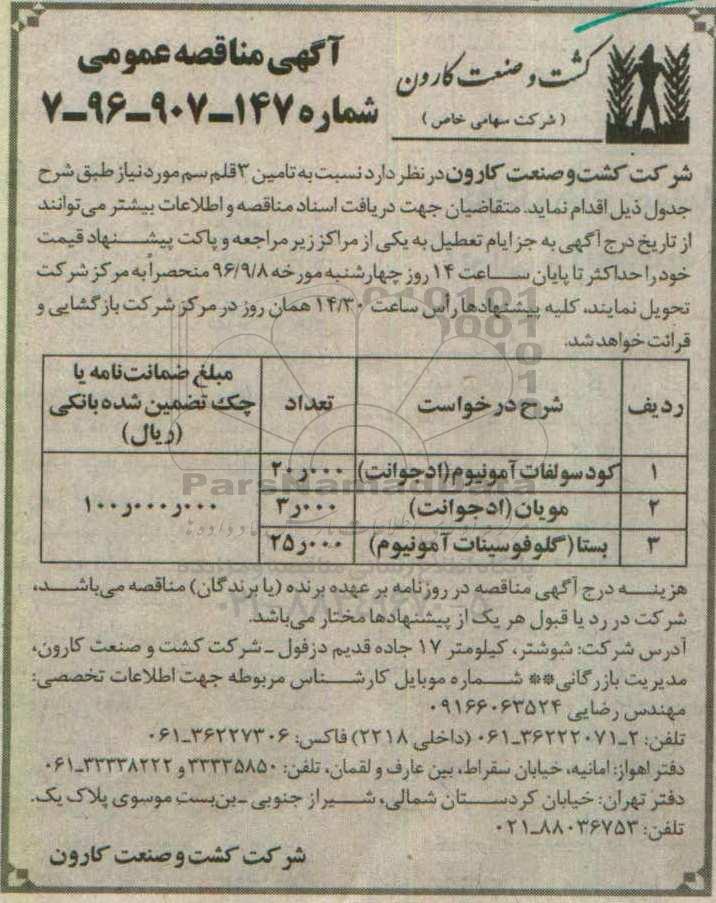 آگهی مناقصه عمومی
شماره ۱۴۷-۹۰۷-۹۶-۷
کشت و صنعت کارون
(شرکت سهامی خاص)
شرکت کشت و صنعت کارون در نظر دارد نسبت به تامین ۳ قلم سم مورد نیاز طبق شرح
جدول ذیل اقدام نماید. متقاضیان جهت دریافت اسناد مناقصه و اطلاعات بیشتر می‌توانند
از تاریخ درج آگهی به جز ایام تعطیل به یکی از مراکز زیر مراجعه و پاکت پیشنهاد قیمت
خود را حداکثر تا پایان ساعت ۱۴ روز چهارشنبه مورخه ۹۶/۹/۸ منحصراً به مرکز شرکت
تحویل نمایند، کلیه پیشنهادها رأس ساعت ۱۴/۳۰ همان روز در مرکز شرکت بازگشایی و
قرائت خواهد شد.
ردیف شرح درخواست تعداد مبلغ ضمانت‌نامه یا چک تضمین شده بانکی (ریال)
۱ کود سولفات آمونیوم (ادجوانت) ۲۰ر۰۰۰
۲ مویان (ادجوانت) ۳ر۰۰۰ ۱۰۰ر۰۰۰ر۰۰۰
۳ بستا (گلوفوسینات آمونیوم) ۲۵ر۰۰۰
ParsNamadData
هزینه درج آگهی مناقصه در روزنامه بر عهده برنده (یا برندگان) مناقصه می‌باشد،
شرکت در رد یا قبول هر یک از پیشنهادها مختار می‌باشد.
آدرس شرکت: شوشتر، کیلومتر ۱۷ جاده قدیم دزفول - شرکت کشت و صنعت کارون،
مدیریت بازرگانی** شماره موبایل کارشناس مربوطه جهت اطلاعات تخصصی:
مهندس رضایی ۰۹۱۶۶۰۶۳۵۲۴
تلفن: ۲-۳۶۲۲۲۰۷۱-۰۶۱ (داخلی ۲۲۱۸) فاکس: ۳۶۲۲۷۳۰۶-۰۶۱
دفتر اهواز: امانیه، خیابان سقراط، بین عارف و لقمان، تلفن: ۳۳۳۳۵۸۵۰ و ۳۳۳۳۸۲۲۲-۰۶۱
دفتر تهران: خیابان کردستان شمالی، شیراز جنوبی - بن‌بست موسوی پلاک یک.
تلفن: ۸۸۰۳۶۷۵۳-۰۲۱
شرکت کشت و صنعت کارون